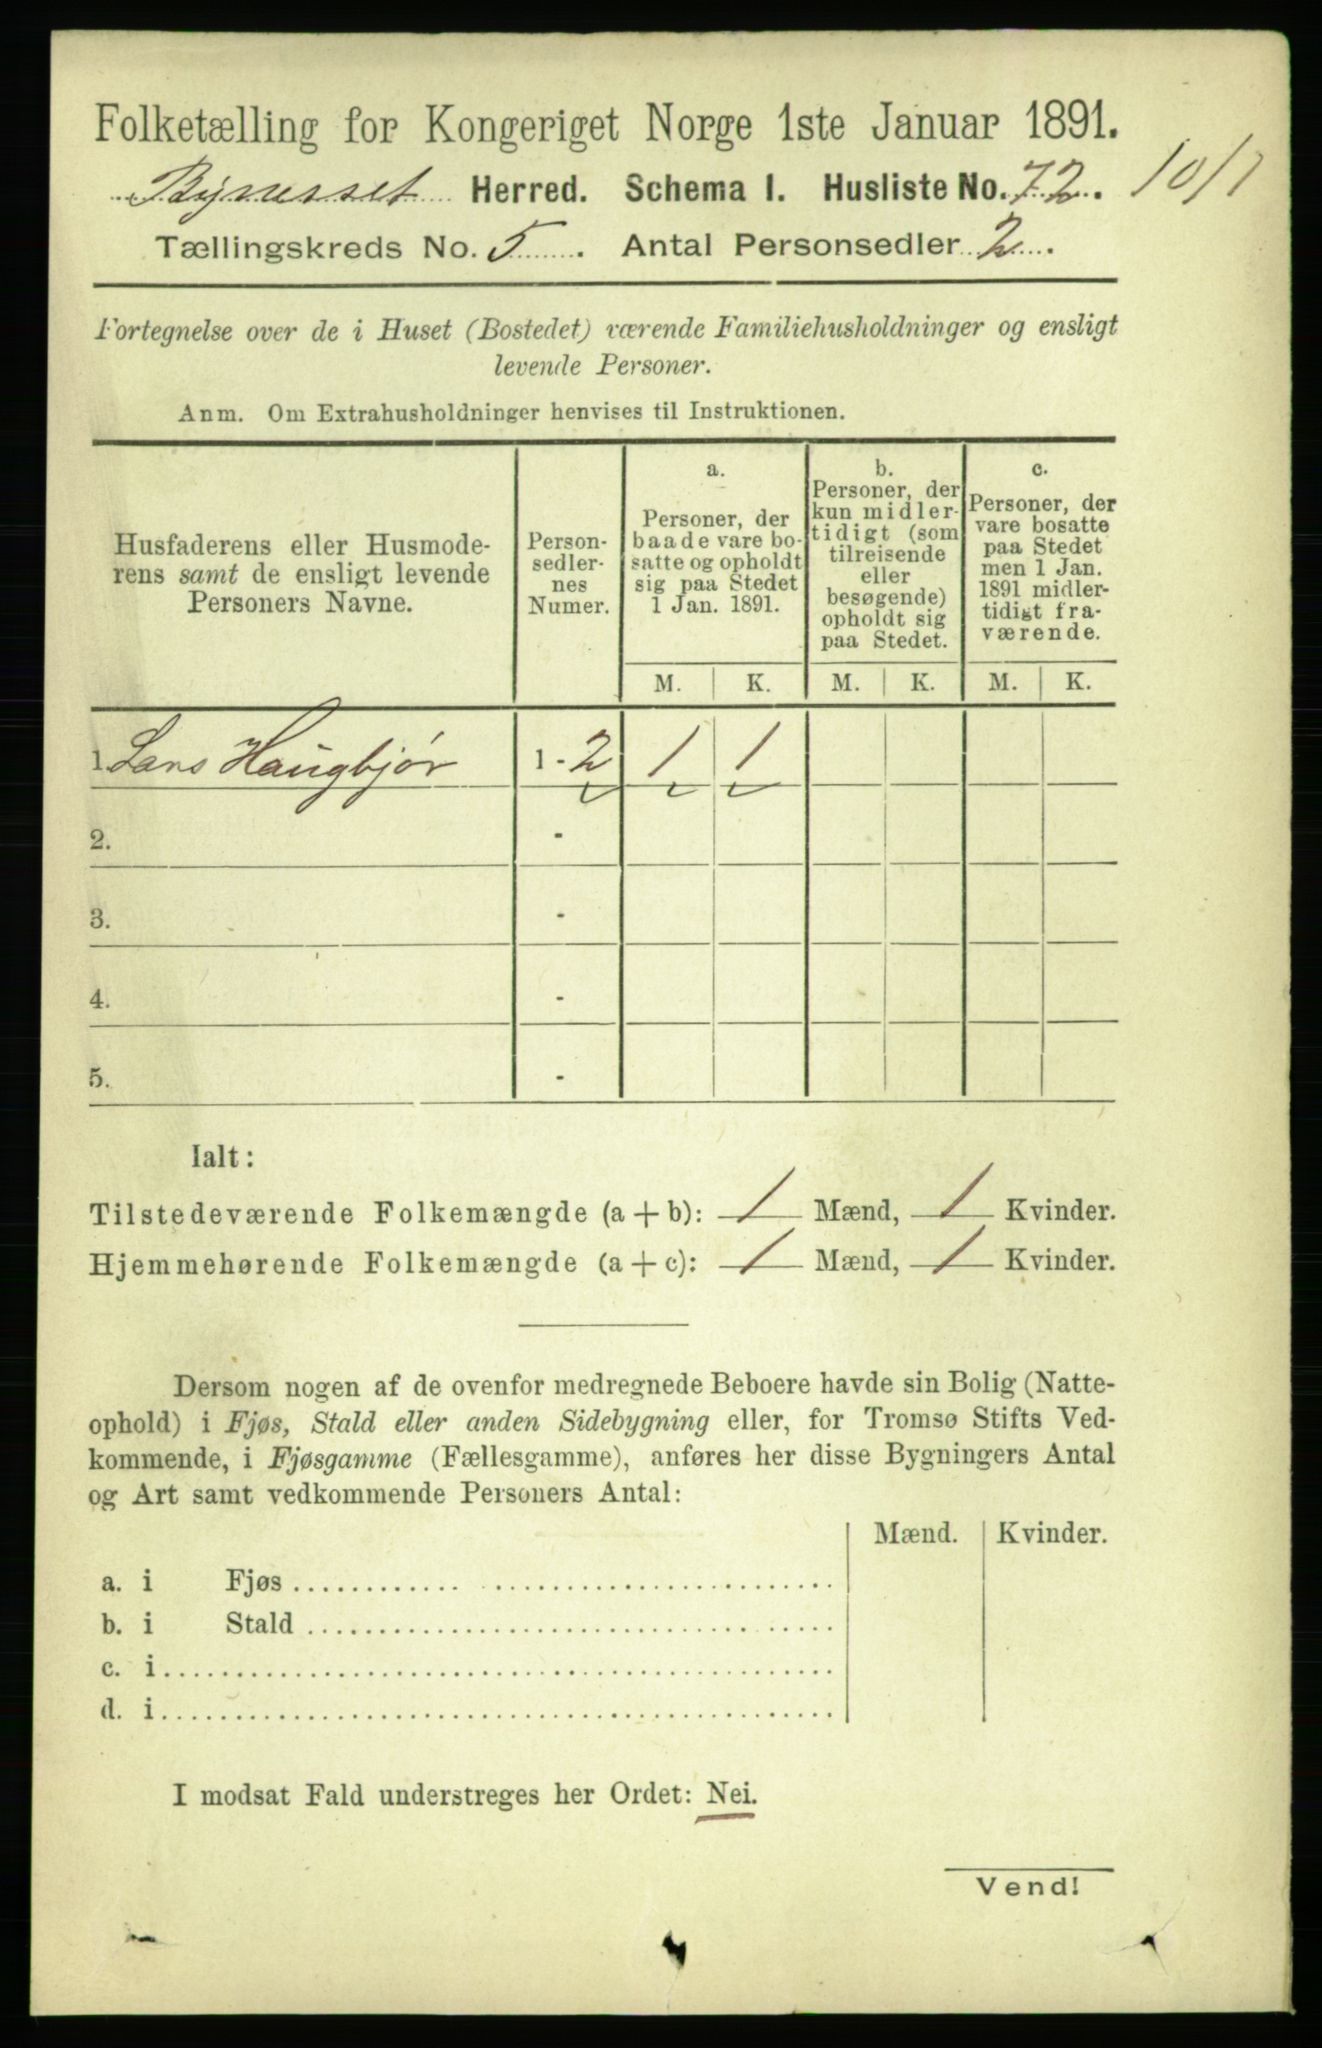 Folketælling for Kongeriget Norge 1ste Januar 1891.
Bynesset Herred. Schema I. Husliste No. 72. 10/1
Tællingskreds No. 5. Antal Personsedler 2.
Fortegnelse over de i Huset (Bostedet) værende Familiehusholdninger og ensligt
levende Personer.
Anm. Om Extrahusholdninger henvises til Instruktionen.
Husfaderens eller Husmode-
rens samt de ensligt levende
Personers Navne.
Person-
sedler-
nes
Numer.
a.
Personer, der
baade vare bo-
satte og opholdt
sig paa Stedet
1 Jan. 1891.
b.
Personer, der
kun midler-
tidigt (som
tilreisende
eller
besøgende)
opholdt sig
paa Stedet.
c.
Personer, der
vare bosatte
paa Stedet
men 1 Jan.
1891 midler-
tidigt fra-
værende.
M. K. M. K. M. K.
1. Lars Haugbjør 1 - 2 1 1
2. -
3. -
4. -
5. -
Ialt:
Tilstedeværende Folkemængde (a + b): 1 Mænd, 1 Kvinder.
Hjemmehørende Folkemængde (a + c): 1 Mænd, 1 Kvinder.
Dersom nogen af de ovenfor medregnede Beboere havde sin Bolig (Natte-
ophold) i Fjøs, Stald eller anden Sidebygning eller, for Tromsø Stifts Ved-
kommende, i Fjøsgamme (Fællesgamme), anføres her disse Bygningers Antal
og Art samt vedkommende Personers Antal:
Mænd. Kvinder.
a. i Fjøs
b. i Stald
c. i
d. i
I modsat Fald understreges her Ordet: Nei.
Vend!